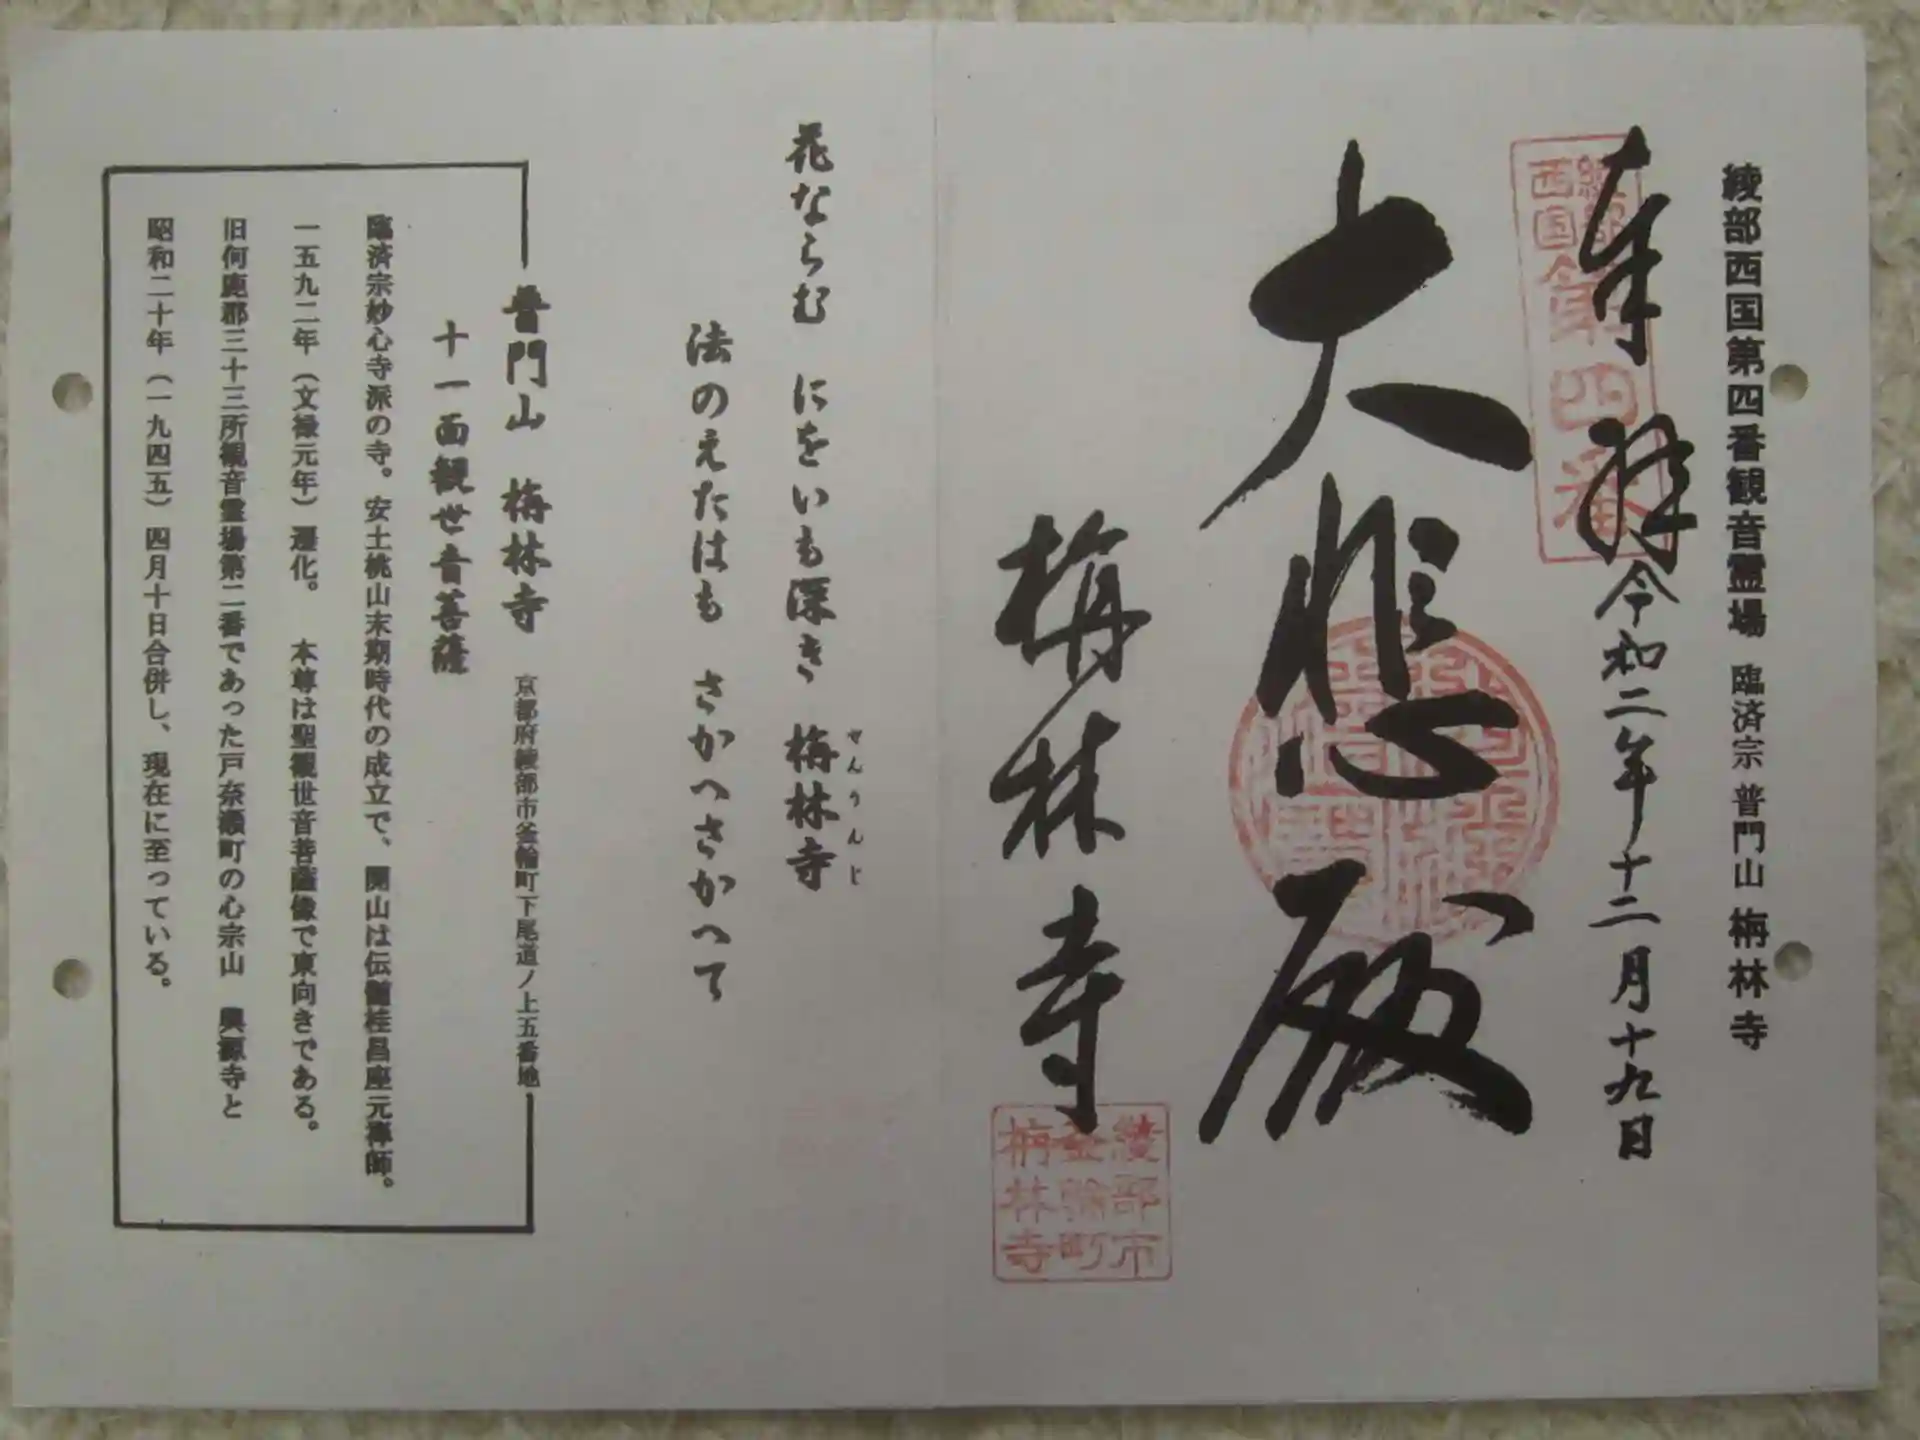 綾部西国第四番観音霊場 臨済宗 普門山 栴林寺
奉拝
令和二年十二月十九日
綾部西国
第四番
大悲殿
栴林寺
綾部市
釜輪町
栴林寺
花ならむ にをいも深き 栴林寺
せんりんじ
法のえたはも さかへさかへて
普門山 栴林寺 京都府綾部市釜輪町下尾道ノ上五番地
十一面観世音菩薩
臨済宗妙心寺派の寺。安土桃山末期時代の成立で、開山は伝髄桂昌座元禅師。
一五九二年（文禄元年）遷化。 本尊は聖観世音菩薩像で東向きである。
旧何鹿郡三十三所観音霊場第二番であった戸奈瀬町の心宗山 興源寺と
昭和二十年（一九四五）四月十日合併し、現在に至っている。